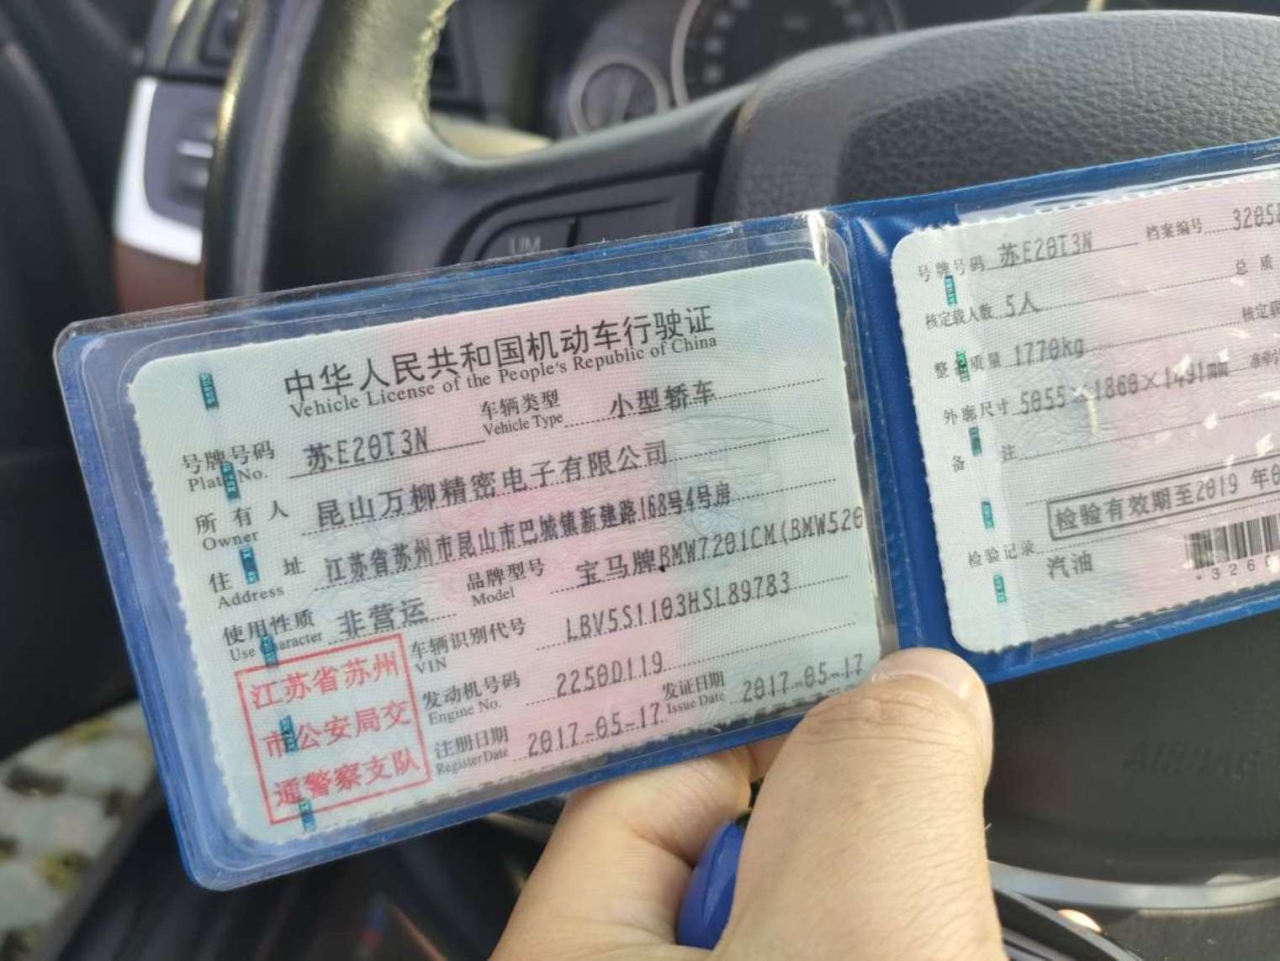 中华人民共和国机动车行驶证
Vehicle License of the People's Republic of China
号牌号码 苏E20T3N 车辆类型 小型轿车
Plate No. Vehicle Type
所有人 昆山万柳精密电子有限公司
Owner
住址 江苏省苏州市昆山市巴城镇新建路168号4号房
Address
品牌型号 宝马牌BMW7201CM(BMW520
Model
使用性质 非营运
Use Character
车辆识别代号 LBV5S1103HSL89783
VIN
发动机号码 2250D119
Engine No.
注册日期 2017-05-17 发证日期 2017-05-17
Register Date Issue Date
江苏省苏州
市公安局交
通警察支队
号牌号码 苏E20T3N 档案编号 3205
核定载人数 5人 总质
整备质量 1770kg 核定载
外廓尺寸 5055×1868×1491mm
备注
检验有效期至2019年0
检验记录
汽油
*3260
UM
AIRBAG